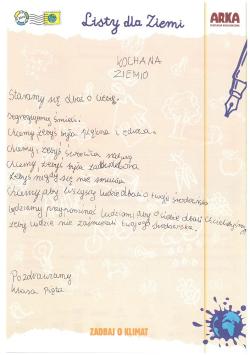 Listy dla Ziemi
ARKA
KOCHANA
ZIEMIO
Staramy się dbać o Ciebie.
Segregujemy śmieci.
Chcemy żebyś była piękna i zdrowa.
Chcemy, żebyś
Chcemy, żebyś była zadbana
Żebyś nigdy się nie smuciła
Chcemy aby wszyscy ludzie dbali o Twoje środowisko
Będziemy przypominać ludziom, aby o Ciebie dbali
żeby ludzie nie zaśmiecali twojego środowiska.
Pozdrawiamy
klasa Piąta
ZADBAJ O KLIMAT